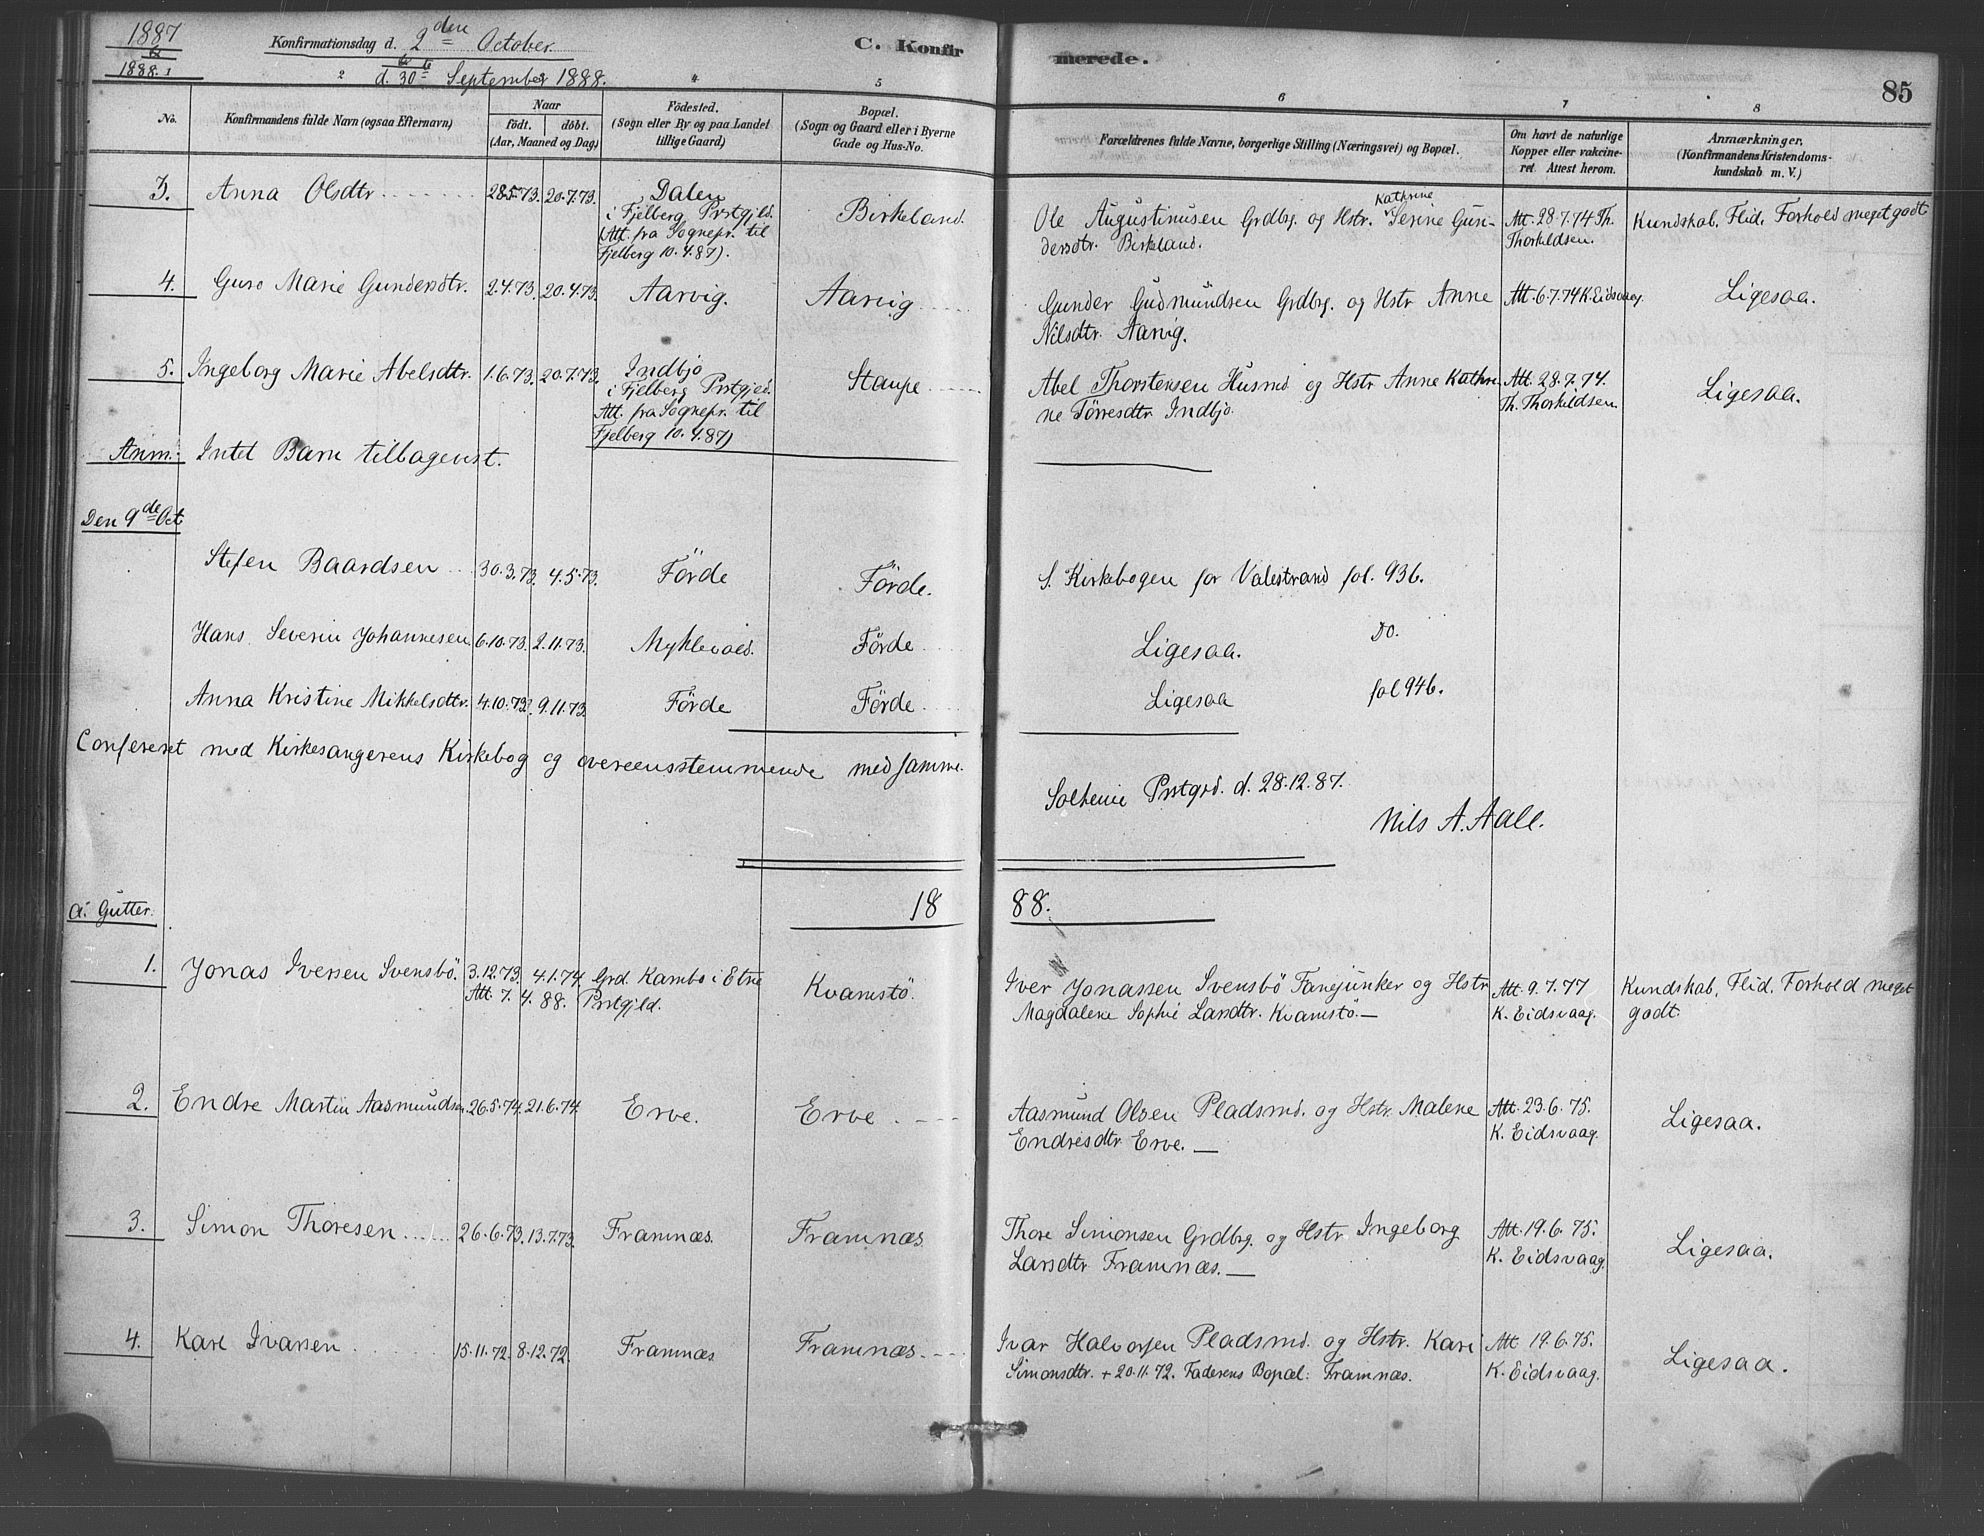 1887
&
1888.
Konfirmationsdag d. 2den October
d. 30te September 1888.
C. Konfirmerede.
85
1 2 4 5 6 7 8
No.
Konfirmandens fulde Navn (ogsaa Efternavn)
Naar
födt. döbt.
(Aar, Maaned og Dag)
Födested.
(Sogn eller By og paa Landet
tillige Gaard)
Bopæl.
(Sogn og Gaard eller i Byerne
Gade og Hus-No.
Forældrenes fulde Navne, borgerlige Stilling (Næringsvei) og Bopæl.
Om havt de naturlige
Kopper eller vakcine-
ret Attest herom.
Anmærkninger.
(Konfirmandens Kristendoms-
kundskab m. V.)
3. Anna Olsdtr 28.5.73. 20.7.73. Dalen
i Fjelberg Prstgjld.
(Att. fra Sognepr. til
Fjelberg 10.4.87).
Birkeland.
Ole Augustinusen Grdbrg. og Hstr. Kathrine Serine Gun-
dersdtr. Birkland.
Att. 28.7.74 Th.
Thorkildsen.
Kundskab, Flid, Forhold meget godt
4. Guro Marie Gundersdtr. 2.4.73. 20.4.73. Aarvig. Aarvig
Gunder Gudmundsen Grdbrg. og Hstr Anne
Nilsdtr. Aarvig.
Att. 6.7.74 K. Eidsvaag
Ligesaa.
5. Ingeborg Marie Abelsdtr. 1.6.73. 20.7.73. Indbjo
i Fjelberg Prstgjed.
Att. fra Sognepr. til
Fjelberg 10.4.87)
Staupe
Abel Thorstensen Husmd og Hstr Anne Kathri-
ne Törresdtr Indbjo.
Att. 28.7.74.
Th. Thorkildsen.
Ligesaa.
Anm: Intet Barn tilbagevist.
Den 9de Oct
Stefen Baardsen 30.3.73. 4.5.73. Förde Förde.
S. Kirkebogen for Valestrand fol. 936.
Hans Severin Johannesen 6.10.73. 2.11.73. Myklevold. Förde
Ligesaa. Do.
Anna Kristine Mikkelsdtr. 4.10.73. 9.11.73. Förde Förde
Ligesaa fol 946.
Confereret med Kirkesangerens Kirkebog og overeensstemmende med samme.
Prstgrd. d. 28.12.87.
Nils A. Aall.
1888.
a. Gutter.
1. Jonas Iversen Svensbö. 3.12.73. 4.1.74. Grd. Kambo i Etne
Att. 7.4.88. Prstgjld.
Kvamstö.
Iver Jonassen Svensbö Fanejunker og Hstr
Magdalene Sophie Larsdtr. Kvamstö.—
Att. 9.7.77
K. Eidsvaag.
Kundskab, Flid, Forhold meget
godt.
2. Endre Martin Aasmundsen. 26.5.74. 21.6.74. Erve. Erve
Aasmund Olsen Pladsmd. og Hstr. Malene
Endresdtr. Erve.—
Att. 23.6.75.
K. Eidsvaag.
Ligesaa.
3. Simon Thoresen 26.6.73. 13.7.73. Framnæs. Framnæs
Thore Simonsen Grdbrg. og Hstr. Ingeborg
Larsdtr Framnæs.—
Att. 19.6.75.
K. Eidsvaag.
Ligesaa.
4. Karl Ivarsen 15.11.72. 8.12.72. Framnæs Framnæs.
Ivar Halvorsen Pladsmd. og Hstr. Kari
Simonsdtr. + 20.11.72. Faderens Bopæl: Framnæs.
Att 19.6.75.
K. Eidsvaag.
Ligesaa.